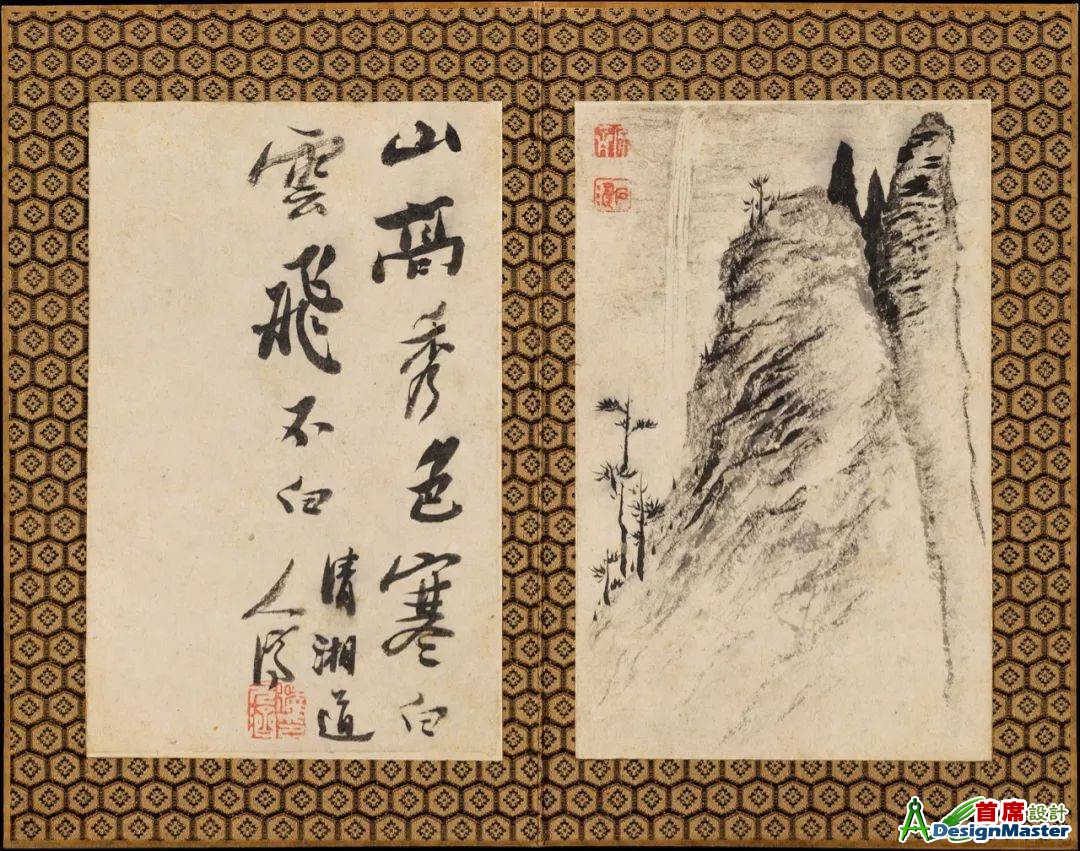 山高秀色寒白
雲飛不白
清湘道
人濟
首席設計
DesignMaster